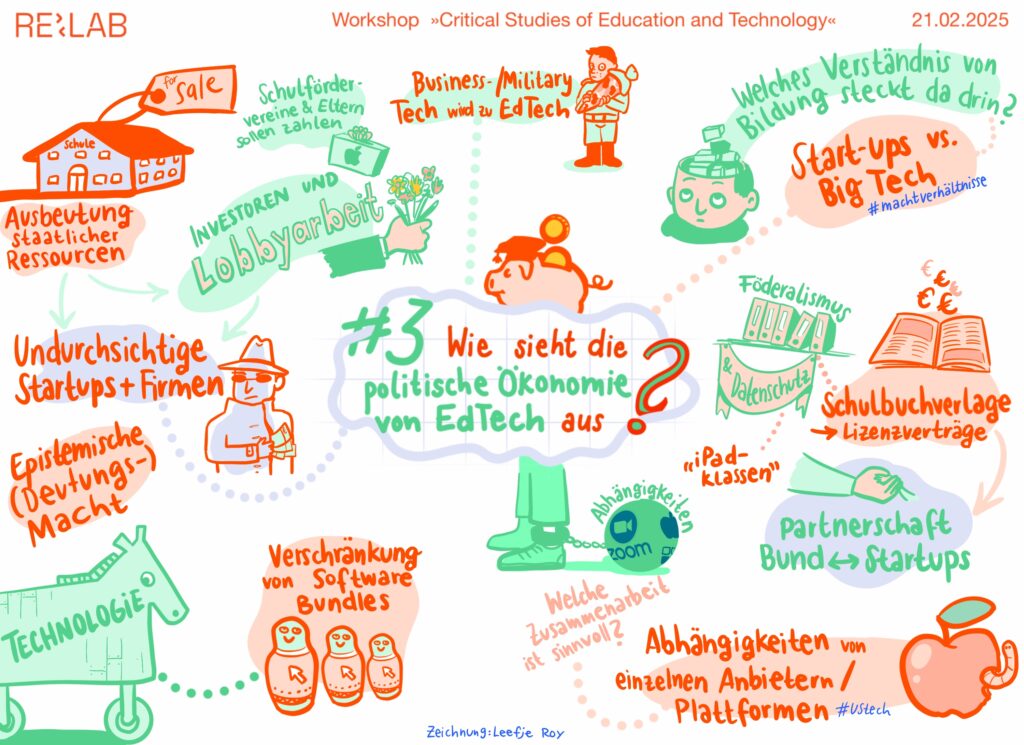 RE:LAB
Workshop »Critical Studies of Education and Technology«
21.02.2025
for
Sale
Schule
Ausbeutung
staatlicher
Ressourcen
Schulförder-
vereine & Eltern
sollen zahlen
Investoren und
Lobbyarbeit
Business-/Military
Tech wird zu EdTech
Welches Verständnis von
Bildung steckt da drin?
Start-ups vs.
Big Tech
#machtverhältnisse
Undurchsichtige
Startups + Firmen
#3 Wie sieht die
politische Ökonomie
von EdTech aus ?
Föderalismus
& Datenschutz
"iPad-
klassen"
€ € € € €
Schulbuchverlage
→ Lizenzverträge
Partnerschaft
Bund ↔ Startups
Epistemische
(Deutungs-)
Macht
TECHNOLOGIE
Verschränkung
von Software
Bundles
Abhängigkeiten
zoom
Welche
Zusammenarbeit
ist sinnvoll?
Abhängigkeiten von
einzelnen Anbietern /
Plattformen #UStech
Zeichnung: Leefje Roy